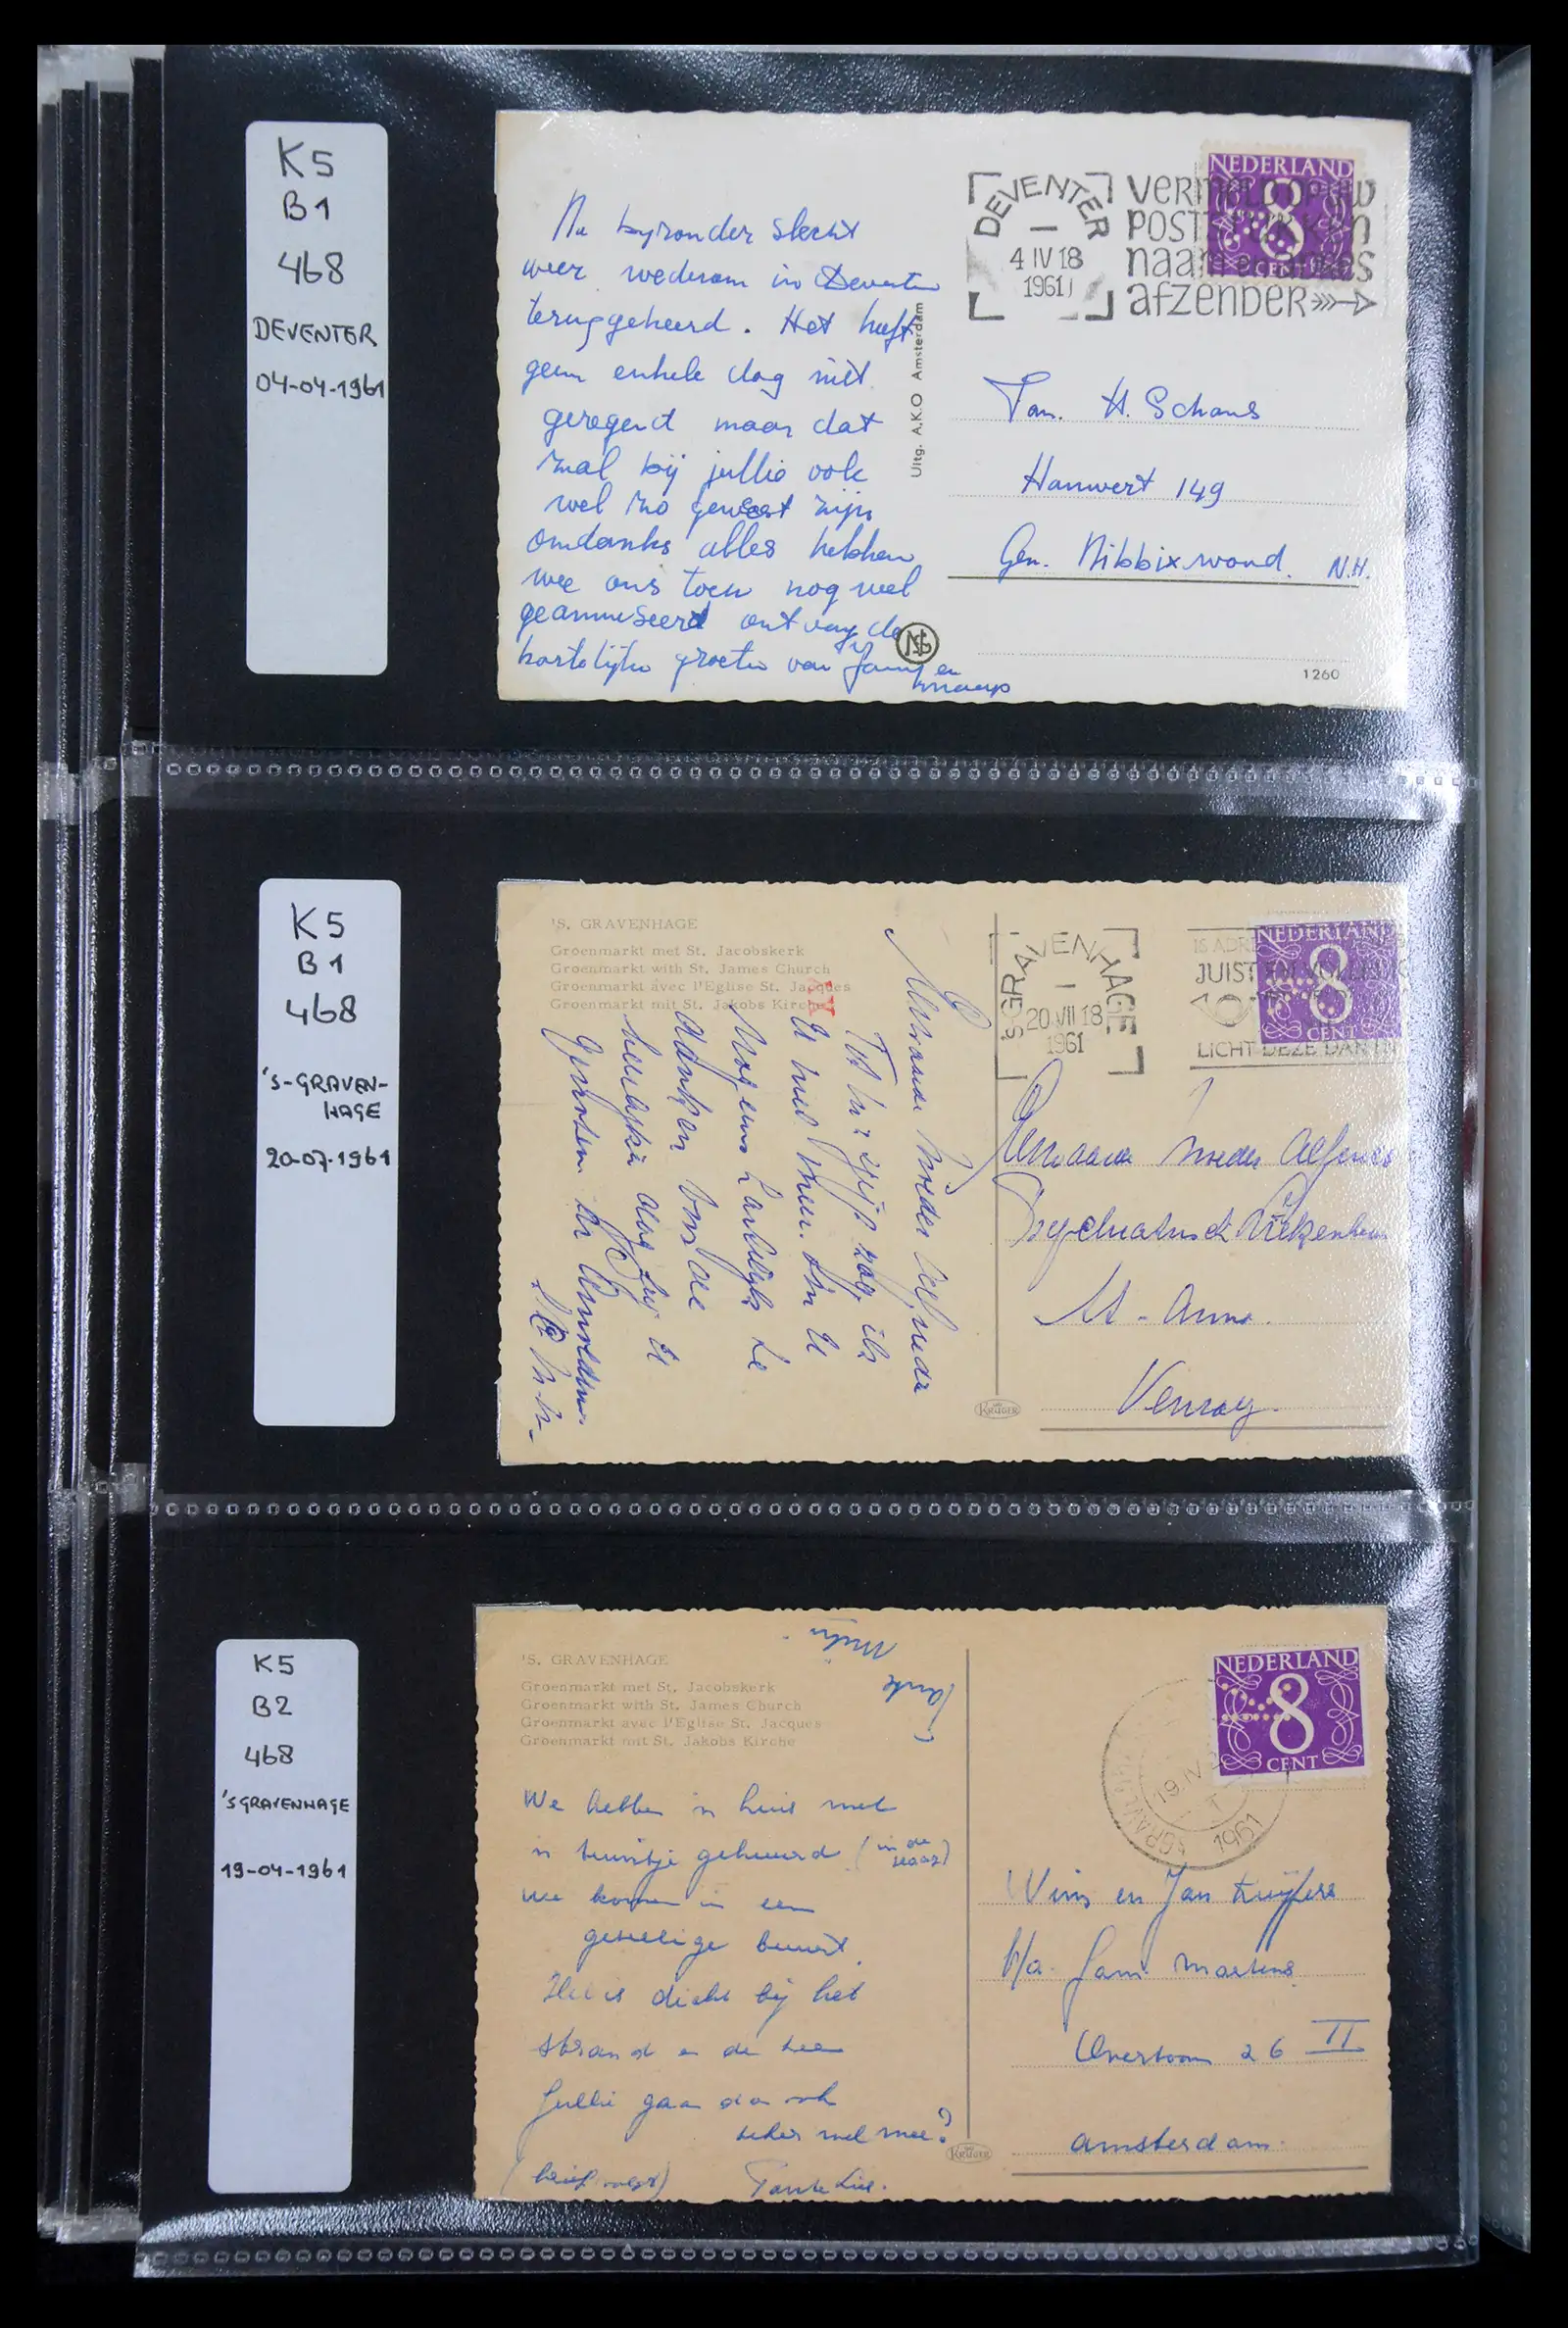 K5
B1
468
DEVENTER
04-04-1961
Na byzonder slecht
weer wederom in Deventer
teruggekeerd. Het heeft
geen enkele dag niet
geregend maar dat
zal bij jullie ook
wel zo geweest zijn
ondanks alles hebben
we ons toch nog wel
geamuseerd ontvang de
hartelijke groeten van Jamy en
Uitg. A.K.O Amsterdam
DEVENTER
4 IV 18
1961
VERMELD OP UW
POSTSTUKKEN
naam en adres
afzender
NEDERLAND
8
CENT
Fam. H. Schans
Hauwert 149
Gem. Nibbixwoud. N.H.
1260
K5
B1
468
'S-GRAVEN-
HAGE
20-07-1961
'S. GRAVENHAGE
Groenmarkt met St. Jacobskerk
Groenmarkt with St. James Church
Groenmarkt avec l'Eglise St. Jacques
Groenmarkt mit St. Jakobs Kirche
Eerwaarde Moeder
Tot m'n spijt zag ik
U niet meer. Om U
Nog eens hartelijk te
danken voor de
'S GRAVENHAGE
20.VII 18
1961
IS ADRES
JUIST EN VOLLEDIG
LICHT DEZE DAN IN
NEDERLAND
8
CENT
Eerwaarde Moeder
Psychiatrisch Ziekenhuis
St. Anna.
Venray.
KRÜGER
K5
B2
468
'SGRAVENHAGE
19-04-1961
'S. GRAVENHAGE
Groenmarkt met St. Jacobskerk
Groenmarkt with St. James Church
Groenmarkt avec l'Eglise St. Jacques
Groenmarkt mit St. Jakobs Kirche
We hebben 'n huis met
'n tuintje gehuurd (in de
we komen in een
gezellige buurt.
Het is dicht bij het
strand en de zee
Jullie gaan dan ook
zeker wel mee?
(brief volgt) Tante Lies.
NEDERLAND
8
CENT
19.IV
1961
Wim en Jan Kuijpers
p/a. Fam. Martens
Overtoom 26 II
Amsterdam.
KRÜGER